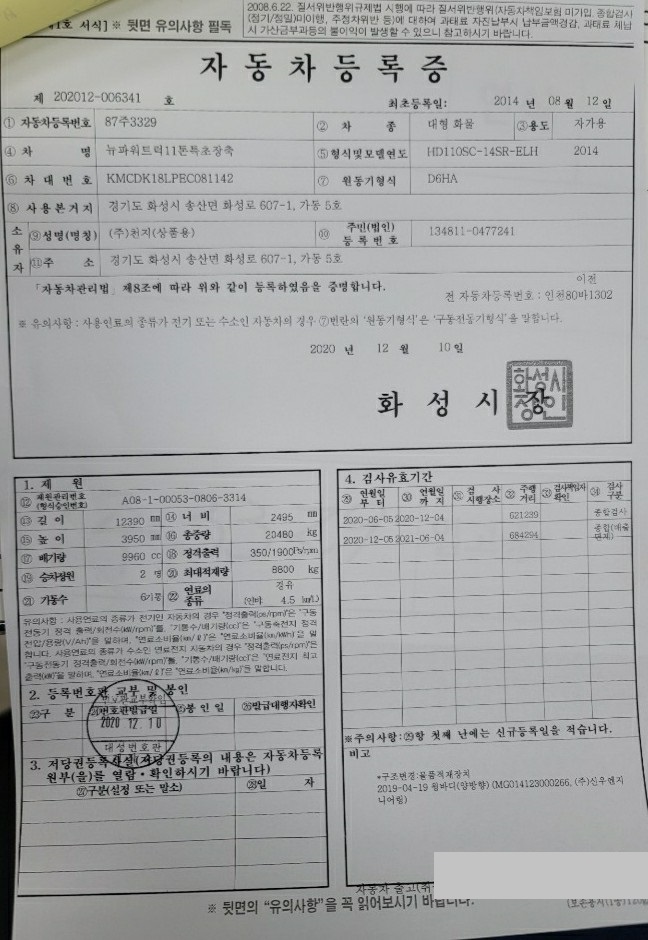 2008.6.22. 질서위반행위규제법 시행에 따라 질서위반행위(자동차책임보험 미가입, 종합검사
(정기/정밀)미이행, 주정차위반 등)에 대하여 과태료 자진납부시 납부금액경감, 과태료 체납
시 가산금부과등의 불이익이 발생할 수 있으니 참고하시기 바랍니다.
1호 서식] ※ 뒷면 유의사항 필독
자동차등록증
제 202012-006341 호
최초등록일: 2014 년 08 월 12 일
① 자동차등록번호 87주3329 ② 차 종 대형 화물 ③용도 자가용
④ 차 명 뉴파워트럭11톤특초장축 ⑤형식및모델연도 HD110SC-14SR-ELH 2014
⑥ 차 대 번 호 KMCDK18LPEC081142 ⑦ 원동기형식 D6HA
⑧ 사 용 본 거 지 경기도 화성시 송산면 화성로 607-1, 가동 5호
소유자 ⑨성명(명칭) (주)천지(상품용) ⑩ 주민(법인)등록번호 134811-0477241
⑪주 소 경기도 화성시 송산면 화성로 607-1, 가동 5호
「자동차관리법」제8조에 따라 위와 같이 등록하였음을 증명합니다.
이전
전 자동차등록번호 : 인천80바1302
※ 유의사항 : 사용연료의 종류가 전기 또는 수소인 자동차의 경우 ⑦번란의 '원동기형식'은 '구동전동기형식'을 말합니다.
2020 년 12 월 10 일
화 성 시 장
화성시
장인
1. 제 원
⑫ 제원관리번호(형식승인번호) A08-1-00053-0806-3314
⑬ 길 이 12390 mm ⑭ 너 비 2495 mm
⑮ 높 이 3950 mm ⑯ 총중량 20480 kg
⑰ 배기량 9960 cc ⑱ 정격출력 350/1900Ps/rpm
⑲ 승차정원 2 명 ⑳ 최대적재량 8800 kg
㉑ 기통수 6기통 ㉒ 연료의 종류 경유
(연비 4.5 km/L)
유의사항 : 사용연료의 종류가 전기인 자동차의 경우 "정격출력(ps/rpm)"은 "구동
전동기 정격 출력/회전수(kW/rpm)"를, "기통수/배기량(cc)"은 "구동축전지 정격
전압/용량(V/Ah)"을 말하며, "연료소비율(km/ℓ)"은 "연료소비율(km/kWh)"을 말
합니다. 사용연료의 종류가 수소인 연료전지 자동차의 경우 "정격출력(ps/rpm)"은
"구동전동기 정격출력/회전수(kW/rpm)"를, "기통수/배기량(cc)"은 "연료전지 최고
출력(kW)"을 말하며, "연료소비율(km/ℓ)"은 "연료소비율(km/kg)"을 말합니다.
2. 등록번호판 교부 및 봉인
㉓구 분 ㉔번호판발급일 ㉕봉 인 일 ㉖발급대행자확인
2020 12. 10
대성번호판
3. 저당권등록사실(저당권등록의 내용은 자동차등록
원부(을)를 열람·확인하시기 바랍니다)
㉗구분(설정 또는 말소) ㉘일 자
4. 검사유효기간
㉙ 연월일부터 ㉚ 연월일까지 ㉛ 검사시행장소 ㉜ 주행거리 ㉝ 검사책임자확인 ㉞ 검사구분
2020-06-05 2020-12-04 621239 종합검사
2020-12-05 2021-06-04 684294
※주의사항:㉙항 첫째 난에는 신규등록일을 적습니다.
비고
*구조변경:물품적재장치
2019-04-19 윙바디(양방향) (MG014123000266, (주)신우엔지
니어링)
자동차 출고
※ 뒷면의 "유의사항"을 꼭 읽어보시기 바랍니다.